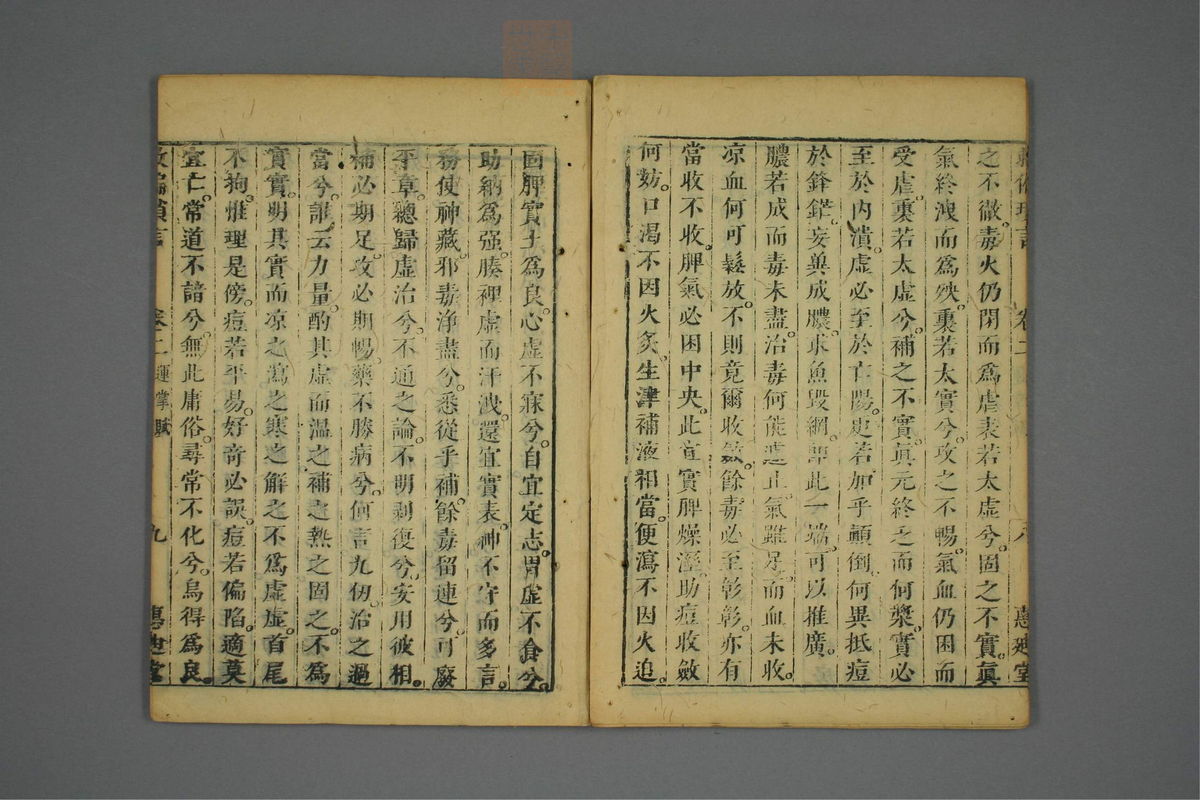 卷二 八 惠迪堂
之不徹毒火仍閉而爲虐表若太虛兮固之不實眞
氣終洩而爲殃裏若太實兮攻之不暢氣血仍困而
受虐裏若太虛兮補之不實眞元終乏而何漿實必
至於內潰虛必至於亡陽更若加乎顛倒何異抵痘
於鋒鋩妄冀成膿求魚毀網舉此一端可以推廣
膿若成而毒未盡治毒何能遽止氣雖足而血未收
凉血何可鬆放不則竟爾收斂餘毒必至彰彰亦有
當收不收脾氣必困中央此宜實脾燥溼助痘收斂
何妨口渴不因火炙生津補液相當便瀉不因火追
固脾實土爲良心虛不寐兮自宜定志胃虛不食兮
助納爲强腠裡虛而汗洩還宜實表神不守而多言
務使神藏邪毒淨盡兮悉從乎補餘毒留連兮可廢
平章總歸虛治兮不通之論不明剥復兮安用彼相
補必期足攻必期暢藥不勝病兮何言九仞治之過
當兮誰云力量酌其虛而溫之補之熱之固之不爲
實實明其實而凉之瀉之寒之解之不爲虛虛首尾
不拘惟理是傍痘若平易好奇必誤痘若偏陷適莫
宜亡常道不諳兮無此庸俗尋常不化兮烏得爲良
救偏瑣言 卷二 運掌賦 九 惠迪堂